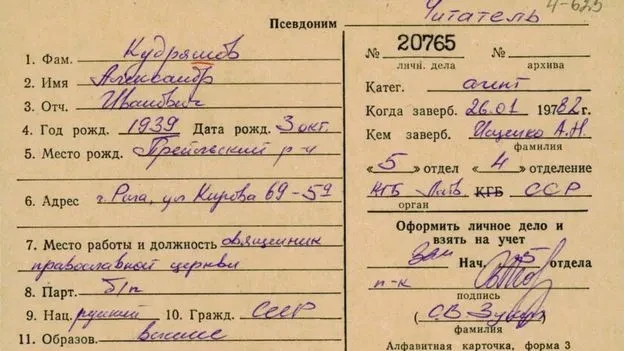 4-625
Псевдоним Читатель
1. Фам. Кудряшов
2. Имя Александр
3. Отч. Иванович
4. Год рожд. 1939 Дата рожд. 3 окт.
5. Место рожд. Прейльский р-н
6. Адрес г. Рига, ул Кирова 69-59
7. Место работы и должность священник
православной церкви
8. Парт. б/п
9. Нац. русский 10. Гражд. СССР
11. Образов. высшее
№ 20765 №
личн. дела архива
Катег. агент
Когда заверб. 26.01 19782г.
Кем заверб. Ищенко А.Н.
фамилия
«5» отдел «4» отделение
КГБ Латв КГБ ССР
орган
Оформить личное дело и
взять на учет
Зам Нач. 5 отдела
п-к
подпись
(С.В.)
фамилия
Алфавитная карточка, форма 3